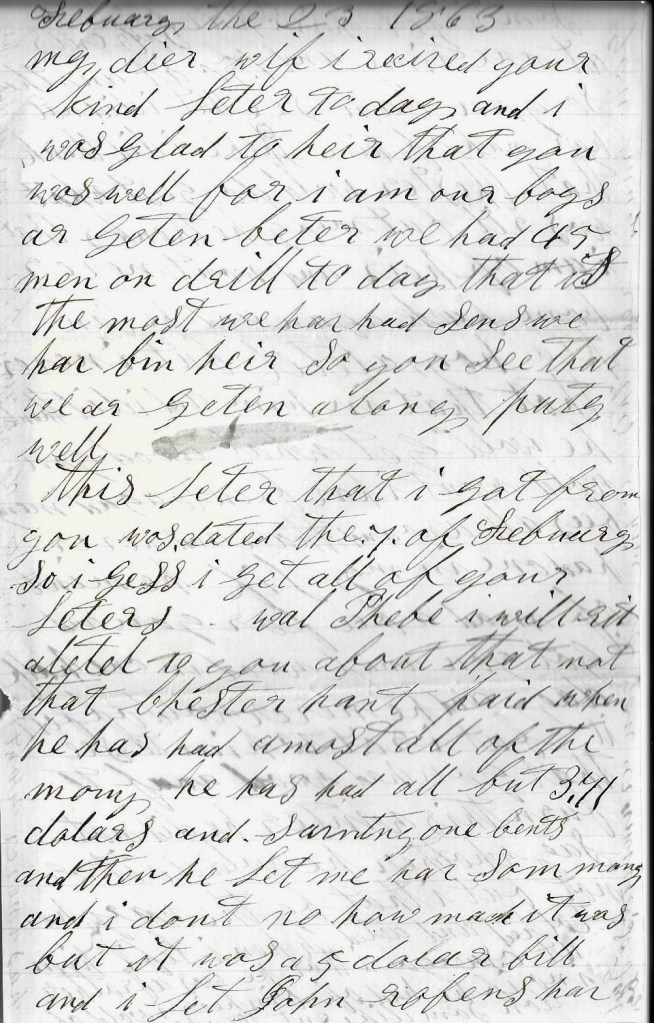 Febuary the 23 1863
my dier wif i recired your
kind leter to day and i
was glad to heir that you
was well for i am our boys
ar geten beter we had 45
men on drill to day that is
the most we har had sens we
har bin heir so you see that
we ar geten along puty
well
this leter that i got from
you was dated the .7. of Febuary
so i gess i get all of your
leters wal Phebe i will rit
aletel to you about that not
that Chester hant paid when
he has had amost all of the
mony he has had all but 3,71
dolars and
one cents
and then he let me har som mony
and i dont no how much it was
but it was a 5 dolar bill
and i let John robens har